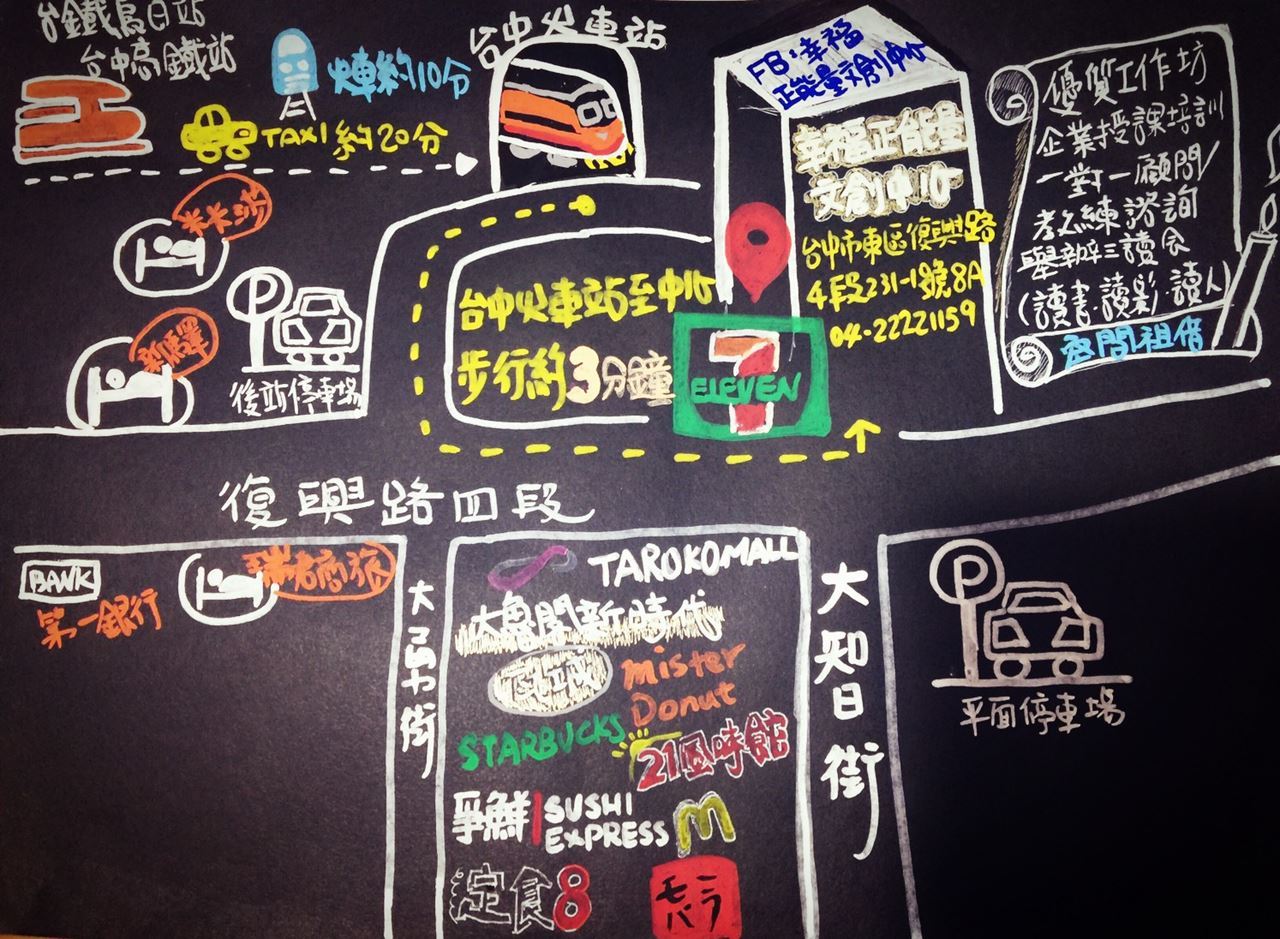 台鐵烏日站
台中高鐵站
火車約10分
TAXI約20分
台中火車站
FB:幸福
正能量文創中心
幸福正能量
文創中心
台中市東區復興路
4段231-1號8A
04-22221159
優質工作坊
企業授課培訓
一對一顧問/
教練諮詢
舉辦三讀会
(讀書·讀影·讀人)
空間租借
米卡沙
新幹線
P
後站停車場
台中火車站至中心
步行約3分鐘
7
ELEVEN
復興路四段
BANK
第一銀行
瑞君商旅
大勇街
TAROKOMALL
大魯閣新時代
Mister
Donut
STARBUCKS
21風味館
爭鮮 SUSHI
EXPRESS
M
定食8
モバラ
大智街
P
平面停車場